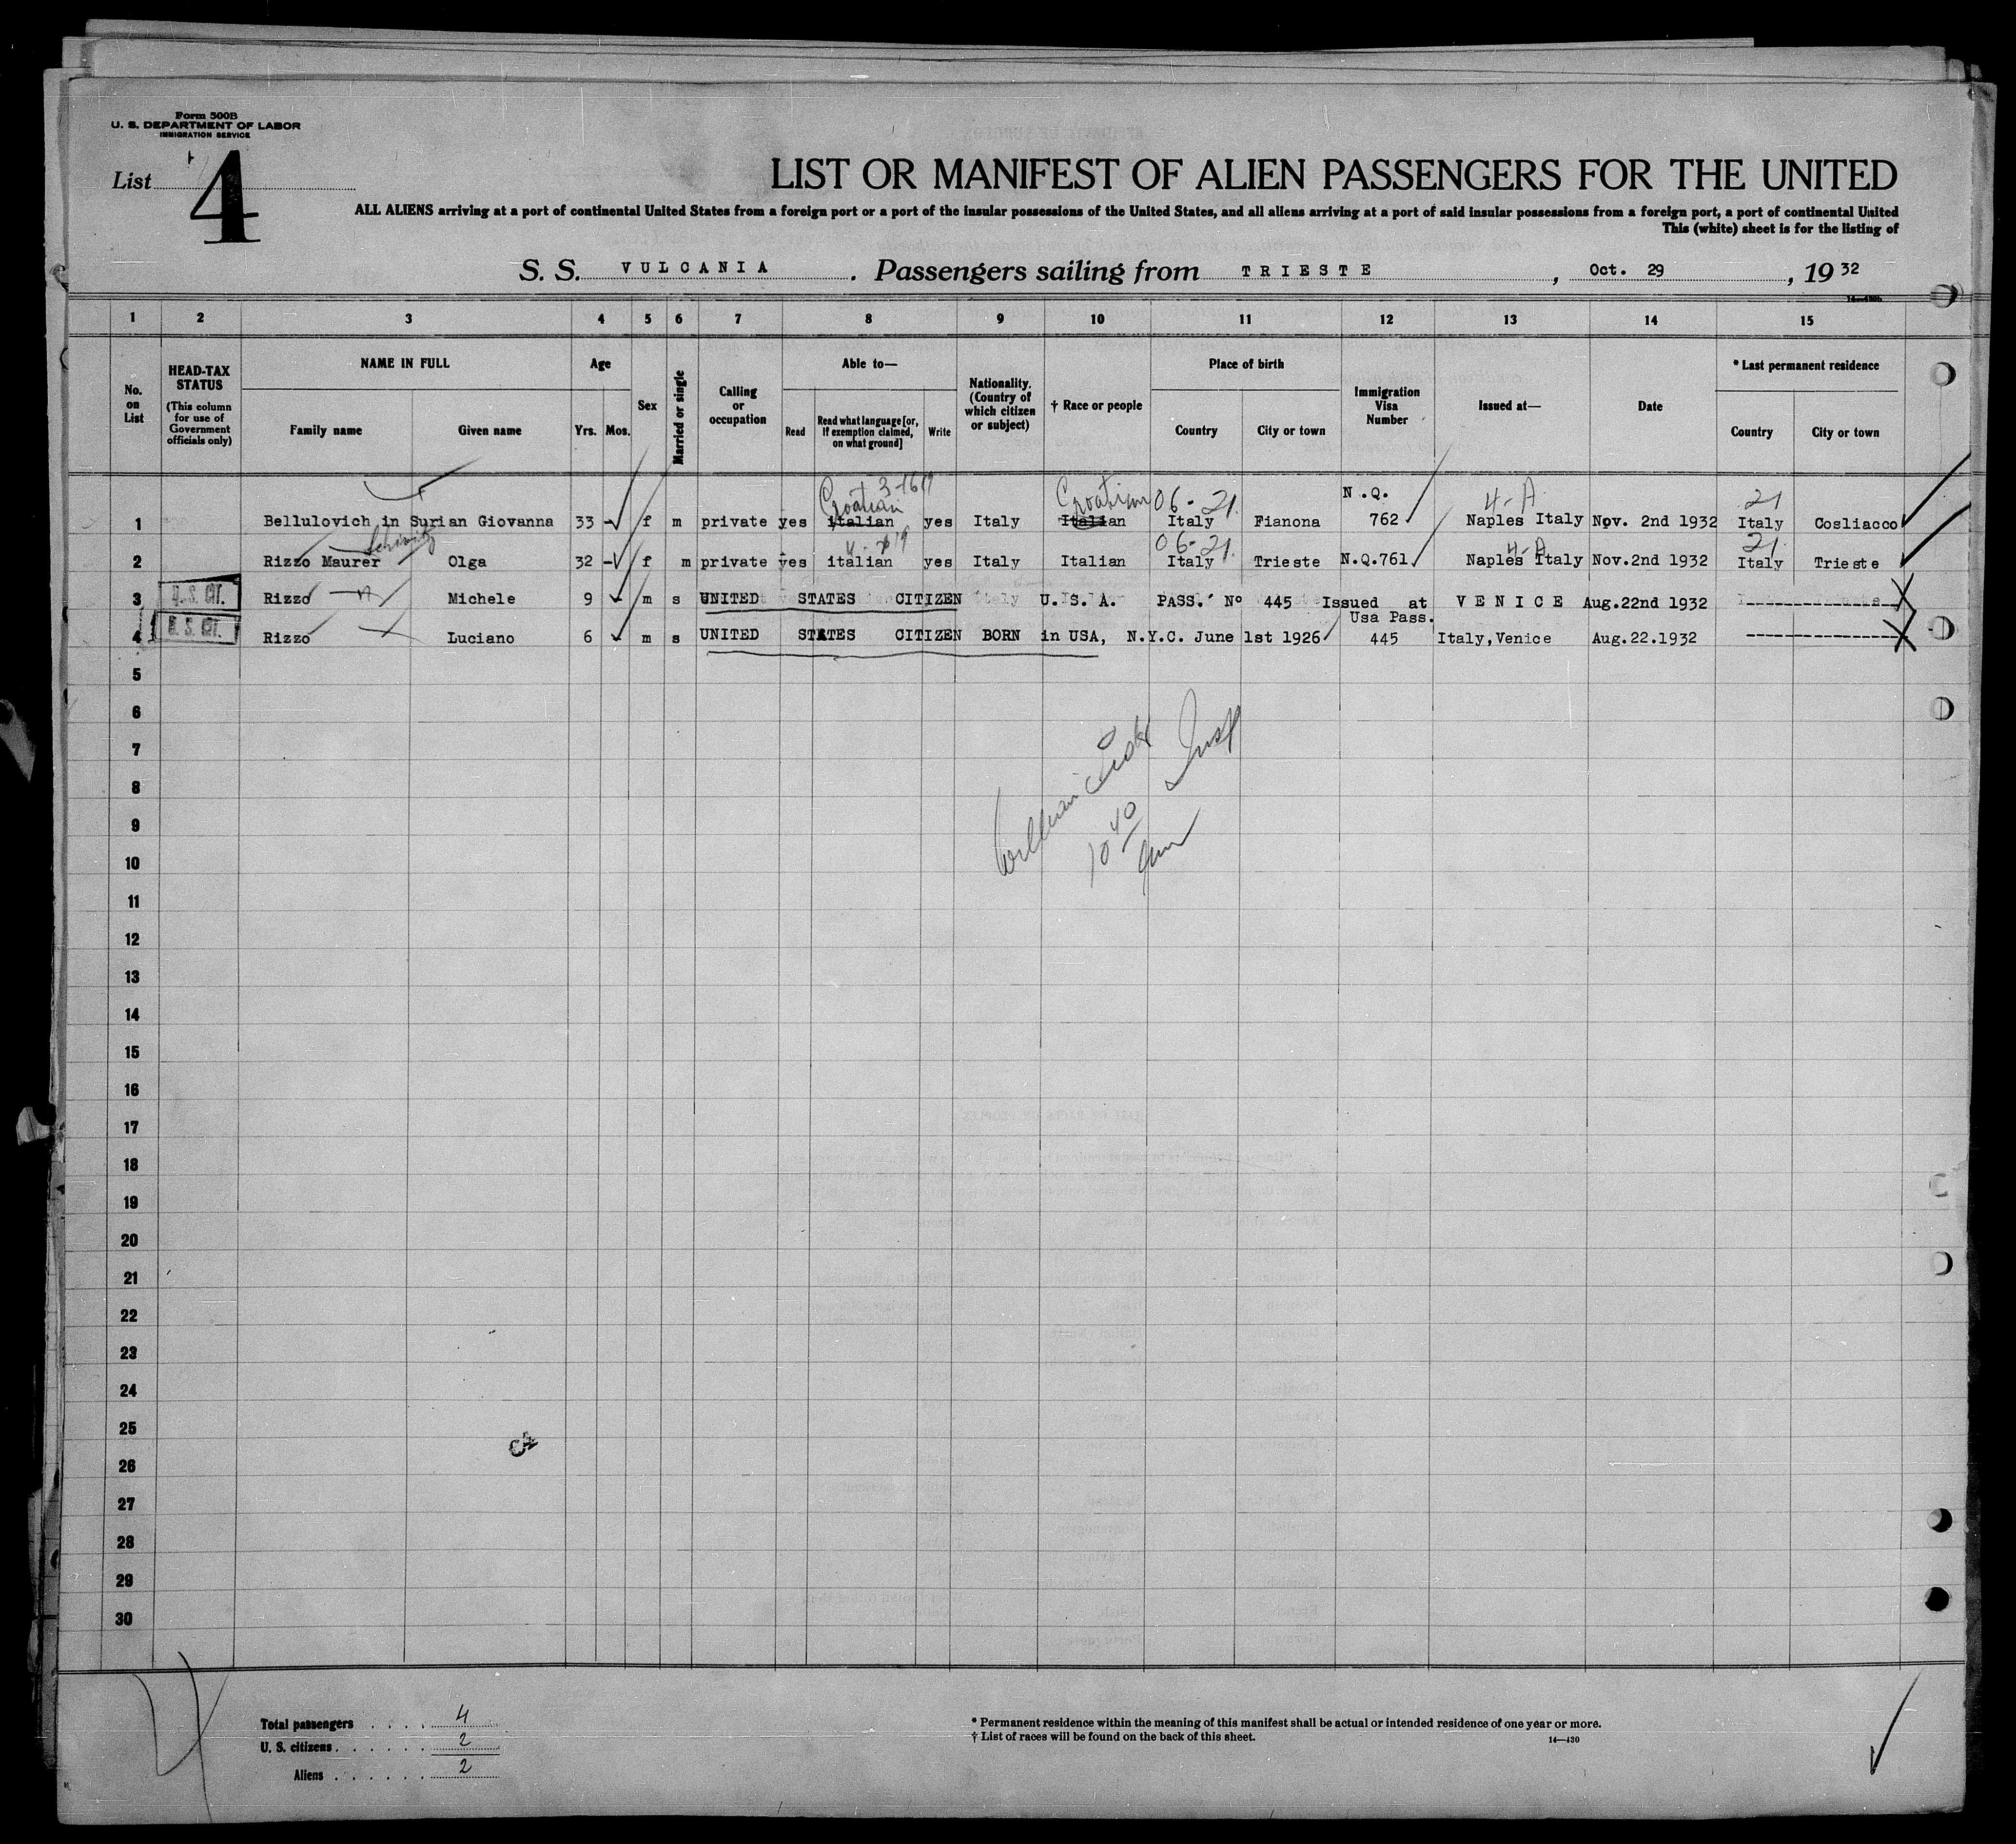 Form 500B
U. S. DEPARTMENT OF LABOR
IMMIGRATION SERVICE
List 4
LIST OR MANIFEST OF ALIEN PASSENGERS FOR THE UNITED
ALL ALIENS arriving at a port of continental United States from a foreign port or a port of the insular possessions of the United States, and all aliens arriving at a port of said insular possessions from a foreign port, a port of continental United
This (white) sheet is for the listing of
S. S. VULCANIA. Passengers sailing from TRIESTE, Oct. 29, 1932
14—430b
1 2 3 4 5 6 7 8 9 10 11 12 13 14 15
No. on List
HEAD-TAX STATUS (This column for use of Government officials only)
NAME IN FULL
Family name Given name
Age
Yrs. Mos.
Sex
Married or single
Calling or occupation
Able to—
Read Read what language [or, if exemption claimed, on what ground] Write
Nationality. (Country of which citizen or subject)
† Race or people
Place of birth
Country City or town
Immigration Visa Number
Issued at—
Date
* Last permanent residence
Country City or town
Croatian Croatian 06-21. N.Q. 4-A 21
1 Bellulovich in Surian Giovanna 33 f m private yes italian yes Italy Italian Italy Fianona 762 Naples Italy Nov. 2nd 1932 Italy Cosliacco
06-21. 4-A 21
2 Rizzo Maurer Olga 32 f m private yes italian yes Italy Italian Italy Trieste N.Q.761 Naples Italy Nov.2nd 1932 Italy Trieste
3 U.S. CIT. Rizzo Michele 9 m s UNITED STATES CITIZEN U.S.A. PASS. Nº 445 Issued at VENICE Aug.22nd 1932 --------------
Usa Pass.
4 U.S. CIT. Rizzo Luciano 6 m s UNITED STATES CITIZEN BORN in USA, N.Y.C. June 1st 1926 445 Italy,Venice Aug.22.1932 --------------
5
6
7
8
9
10
11
12
13
14
15
16
17
18
19
20
21
22
23
24
25
26
27
28
29
30
William Insp
10 40
am
Total passengers . . . . 4
U. S. citizens . . . . . . 2
Aliens . . . . . . 2
* Permanent residence within the meaning of this manifest shall be actual or intended residence of one year or more.
† List of races will be found on the back of this sheet.
14—430